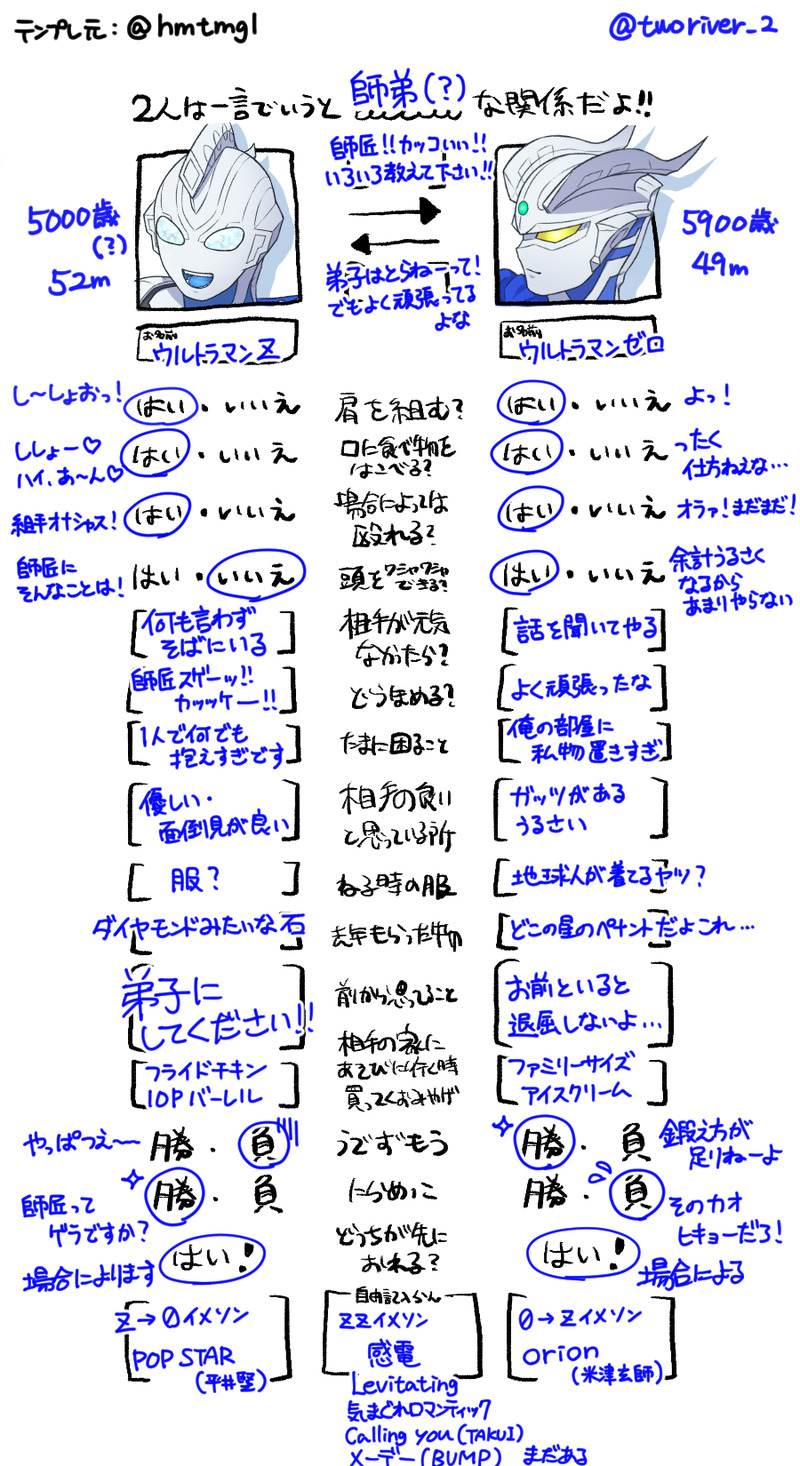 テンプレ元:@hmtmgl
@tworiver_2
2人は一言でいうと 師弟(?) な関係だよ!!
5000歳
(?)
52m
師匠!!カッコいい!!
いろいろ教えて下さい!!
弟子はとらねーって!
でもよく頑張ってる
よな
5900歳
49m
お名前
ウルトラマンZ
お名前
ウルトラマンゼロ
し〜しょおっ! はい・いいえ 肩を組む? はい・いいえ よっ!
ししょー♡
ハイ、あ〜ん♡
はい・いいえ
口に食べ物を
はこべる?
はい・いいえ
ったく
仕ちねえな…
組手オナシャス! はい・いいえ
場合によっては
殴れる?
はい・いいえ オラァ!まだまだ!
師匠に
そんなことは!
はい・いいえ
頭をワシャワシャ
できる?
はい・いいえ
余計うるさく
なるから
あまりやらない
何も言わず
そばにいる
相手が元気
なかったら?
話を聞いてやる
師匠スゲーッ!!
カッケー!!
どうほめる?
よく頑張ったな
1人で何でも
抱えすぎです
たまに困ること
俺の部屋に
私物置きすぎ
優しい・
面倒見が良い
相手の良い
と思っている所
ガッツがある
うるさい
服?
ねる時の服
地球人が着てるヤツ?
ダイヤモンドみたいな石
去年もらった物
どこの星のペナントだよこれ…
弟子に
してください!!
前から思ってること
お前といると
退屈しないよ…
フライドチキン
10Pバーレル
相手の家に
あそびに行く時
買ってくおみやげ
ファミリーサイズ
アイスクリーム
やっぱつえ〜〜 勝・負 うでずもう 勝・負
鍛え方が
足りねーよ
師匠って
ゲラですか?
勝・負 にらめっこ 勝・負
そのカオ
ヒキョーだろ!
場合によります はい!
どっちが先に
おれる?
はい! 場合による
Z→0イメソン
POP STAR
(平井堅)
自由記入らん
ZZイメソン
感電
Levitating
気まぐれロマンティック
Calling you(TAKUI)
メーデー(BUMP) まだある
0→Zイメソン
orion
(米津玄師)